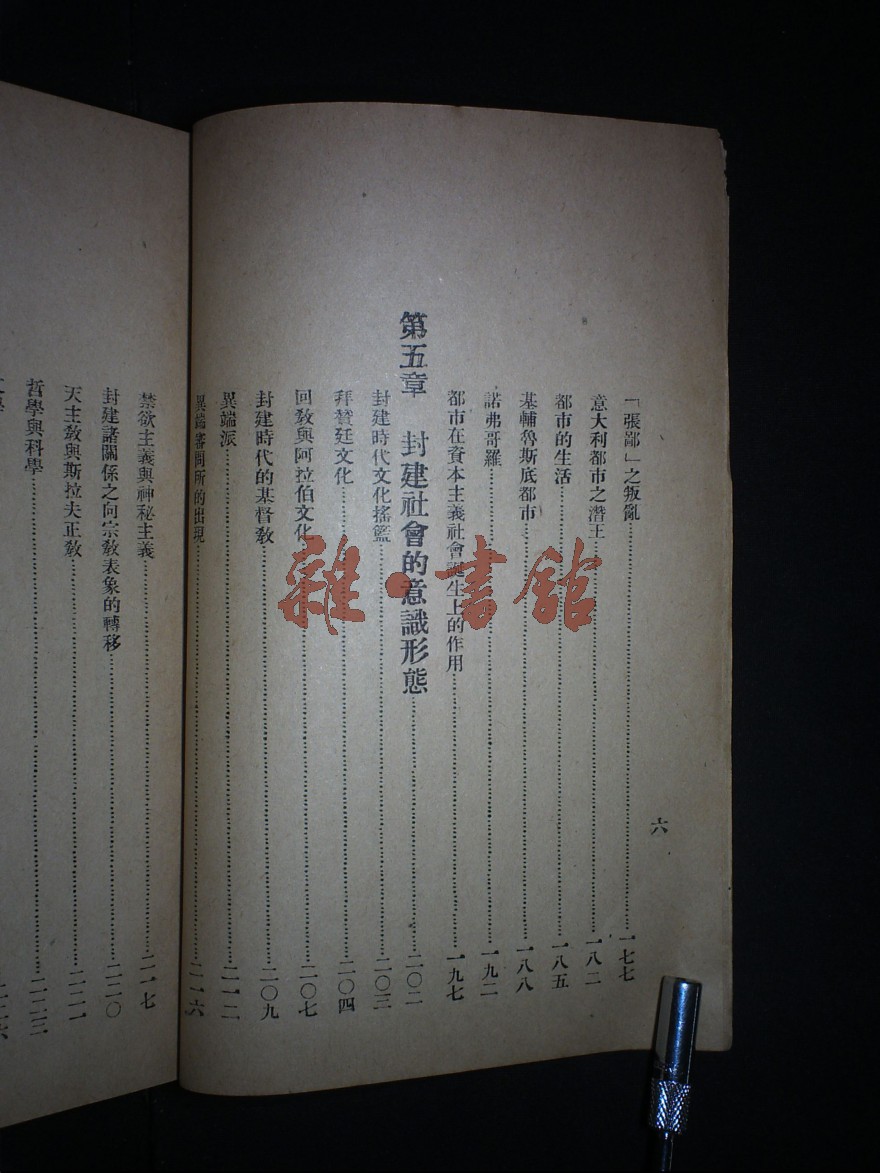 「張鄙」之叛亂……一七七
意大利都市之潛主……一八二
都市的生活……一八五
基輔魯斯底都市……一八八
諾弗哥羅……一九二
都市在資本主義社會誕生上的作用……一九七
第五章 封建社會的意識形態……二〇二
封建時代文化搖籃……二〇三
拜贊廷文化……二〇四
回教與阿拉伯文化……二〇七
封建時代的基督教……二〇九
異端派……二一二
異端審問所的出現……二一六
六
禁欲主義與神秘主義……二一七
封建諸關係之向宗教表象的轉移……二二〇
天主教與斯拉夫正教……二二一
哲學與科學……二二三
雜·書館